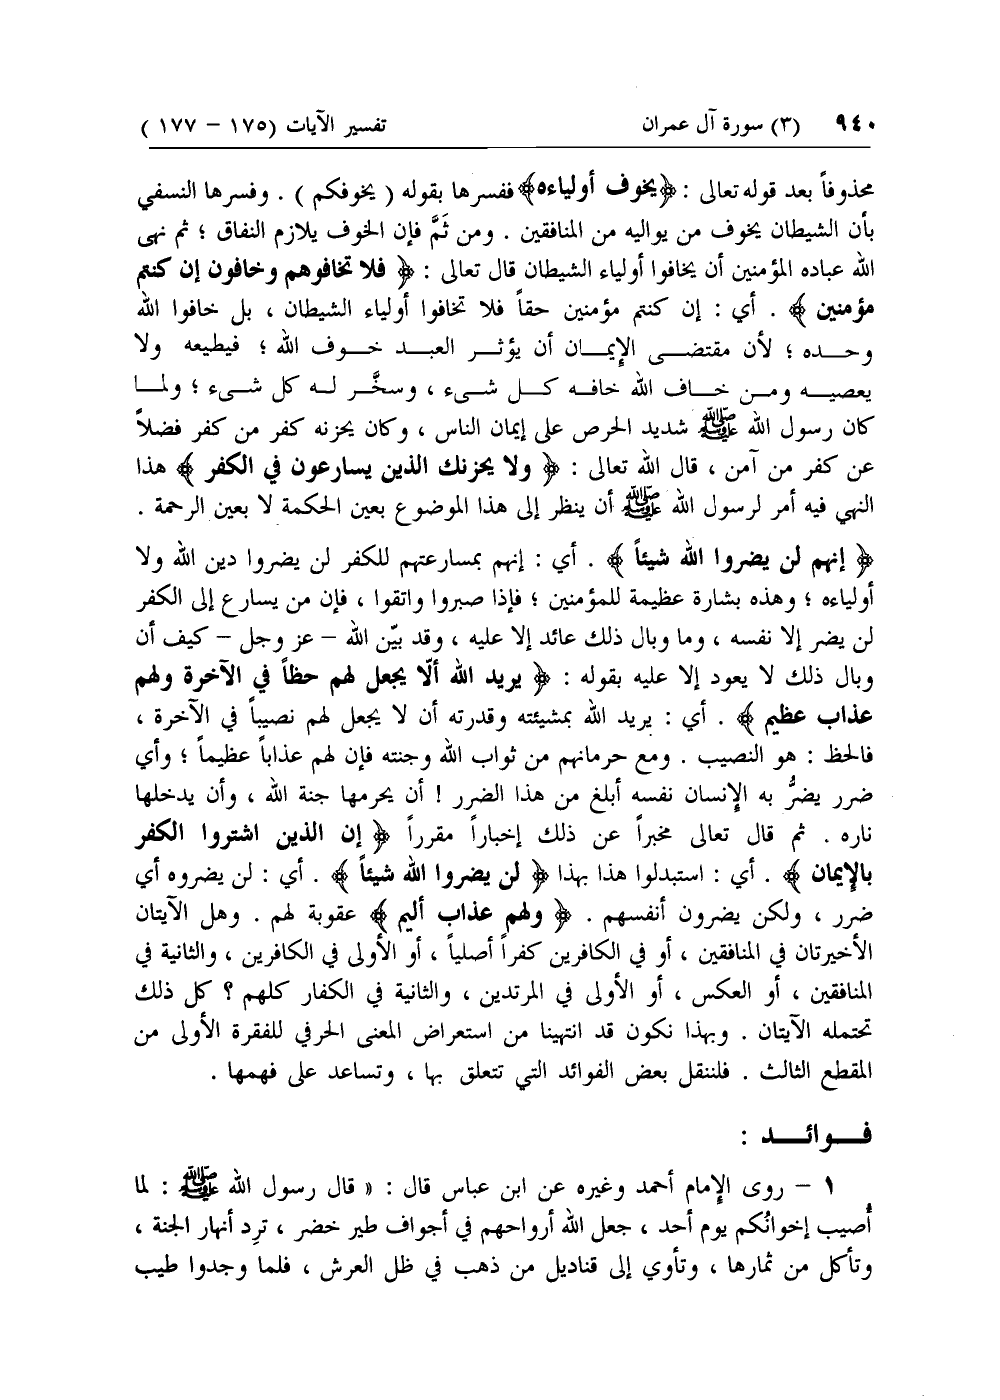 ٩٤٠ (٣) سورة آل عمران تفسير الآيات (١٧٥ - ١٧٧ )
محذوفاً بعد قوله تعالى : ﴿يخوف أولياءه﴾ ففسرها بقوله ( يخوفكم ) . وفسرها النسفي
بأن الشيطان يخوف من يواليه من المنافقين . ومن ثَمَّ فإن الخوف يلازم النفاق ؛ ثم نهى
الله عباده المؤمنين أن يخافوا أولياء الشيطان قال تعالى : ﴿ فلا تخافوهم وخافون إن كنتم
مؤمنين ﴾ . أي : إن كنتم مؤمنين حقاً فلا تخافوا أولياء الشيطان ، بل خافوا الله
وحده ؛ لأن مقتضى الإيمان أن يؤثر العبد خوف الله ؛ فيطيعه ولا
يعصيه ومن خاف الله خافه كل شيء ، وسخَّر له كل شيء ؛ ولما
كان رسول الله ﷺ شديد الحرص على إيمان الناس ، وكان يحزنه كفر من كفر فضلاً
عن كفر من آمن ، قال الله تعالى : ﴿ ولا يحزنك الذين يسارعون في الكفر ﴾ هذا
النهي فيه أمر لرسول الله ﷺ أن ينظر إلى هذا الموضوع بعين الحكمة لا بعين الرحمة .
﴿ إنهم لن يضروا الله شيئاً ﴾ . أي : إنهم بمسارعتهم للكفر لن يضروا دين الله ولا
أولياءه ؛ وهذه بشارة عظيمة للمؤمنين ؛ فإذا صبروا واتقوا ، فإن من يسارع إلى الكفر
لن يضر إلا نفسه ، وما وبال ذلك عائد إلا عليه ، وقد بيّن الله - عز وجل - كيف أن
وبال ذلك لا يعود إلا عليه بقوله : ﴿ يريد الله ألّا يجعل لهم حظاً في الآخرة ولهم
عذاب عظيم ﴾ . أي : يريد الله بمشيئته وقدرته أن لا يجعل لهم نصيباً في الآخرة ،
فالحظ : هو النصيب . ومع حرمانهم من ثواب الله وجنته فإن لهم عذاباً عظيماً ؛ وأي
ضرر يضرُّ به الإنسان نفسه أبلغ من هذا الضرر ! أن يحرمها جنة الله ، وأن يدخلها
ناره . ثم قال تعالى مخبراً عن ذلك إخباراً مقرراً ﴿ إن الذين اشتروا الكفر
بالإيمان ﴾ . أي : استبدلوا هذا بهذا ﴿ لن يضروا الله شيئاً ﴾ . أي : لن يضروه أي
ضرر ، ولكن يضرون أنفسهم . ﴿ ولهم عذاب أليم ﴾ عقوبة لهم . وهل الآيتان
الأخيرتان في المنافقين ، أو في الكافرين كفراً أصلياً ، أو الأولى في الكافرين ، والثانية في
المنافقين ، أو العكس ، أو الأولى في المرتدين ، والثانية في الكفار كلهم ؟ كل ذلك
تحتمله الآيتان . وبهذا نكون قد انتهينا من استعراض المعنى الحرفي للفقرة الأولى من
المقطع الثالث . فلننقل بعض الفوائد التي تتعلق بها ، وتساعد على فهمها .
فوائد :
١ - روى الإمام أحمد وغيره عن ابن عباس قال : « قال رسول الله ﷺ : لما
أُصيب إخوانُكم يوم أحد ، جعل الله أرواحهم في أجواف طير خضر ، ترِد أنهار الجنة ،
وتأكل من ثمارها ، وتأوي إلى قناديل من ذهب في ظل العرش ، فلما وجدوا طيب